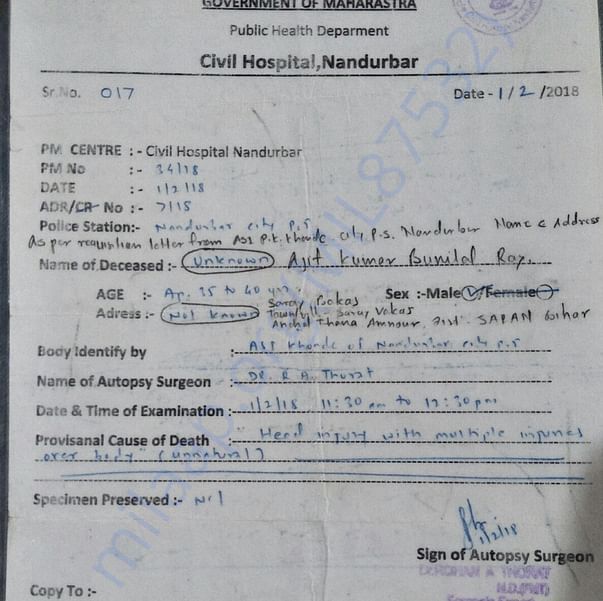 GOVERNMENT OF MAHARASTRA
Public Health Deparment
Civil Hospital,Nandurbar
Sr.No. 017
Date - 1/2/2018
PM CENTRE :- Civil Hospital Nandurbar
PM No :- 34/18
DATE :- 1/2/18
ADR/CR No :- 7/18
Police Station:- Nandurbar city P.S
As per requisition letter from ASI P.K. Khonde city P.S. Nandurbar Name & Address
Name of Deceased :- Unknown Ajit Kumar Bunilal Ray.
AGE :- Ap. 35 to 40 yrs Sex :-Male/Female
Adress :- Not Known Saray Bokas
Town/vill - Saray Vokas
Anchal Thana Amnour, Dist. SARAN Bihar
Body Identify by :- ASI Khonde of Nandurbar city P.S
Name of Autopsy Surgeon :- Dr. R. A. Thorat
Date & Time of Examination :- 1/2/18 11:30 am to 12:30 pm
Provisanal Cause of Death :- "Head injury with multiple injuries
over body" (unnatural)
Specimen Preserved :- Nil
1/2/18
Sign of Autopsy Surgeon
A THORAT
Copy To :-
milaap.org